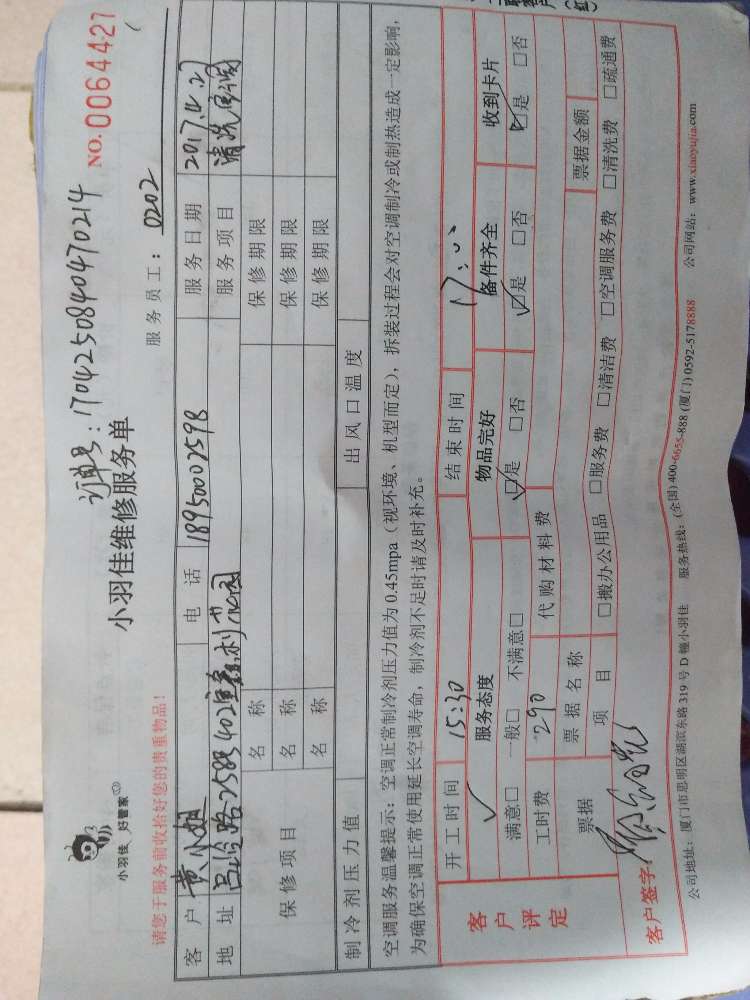 订单号:170425084040470214
NO.0064427
小羽佳 好管家
小羽佳维修服务单
请您于服务前收拾好您的贵重物品!
服务员工: 0202
客户 黄小姐 电话 18950002598 服务日期 2017.4.27
地址 吕岭路 402 花园 服务项目 清洗
保修项目 名称 保修期限
名称 保修期限
名称 保修期限
制冷剂压力值 出风口温度
空调服务温馨提示:空调正常制冷剂压力值为0.45mpa(视环境、机型而定),拆装过程会对空调制冷或制热造成一定影响,
为确保空调正常使用延长空调寿命,制冷剂不足时请及时补充。
客户评定
开工时间 15:30 结束时间 17:00
服务态度 物品完好 备件齐全 收到卡片
满意□ 一般□ 不满意□ □是 □否 □是 □否 □是 □否
工时费 290 代购材料费
票据 票据名称 票据金额
项目 □搬办公用品 □服务费 □清洁费 □空调服务费 □清洗费 □疏通费
客户签字:
公司地址:厦门市思明区湖滨东路319号D幢小羽佳 服务热线:(全国)400-6655-888 (厦门)0592-5178888 公司网站:www.xiaoyujia.com